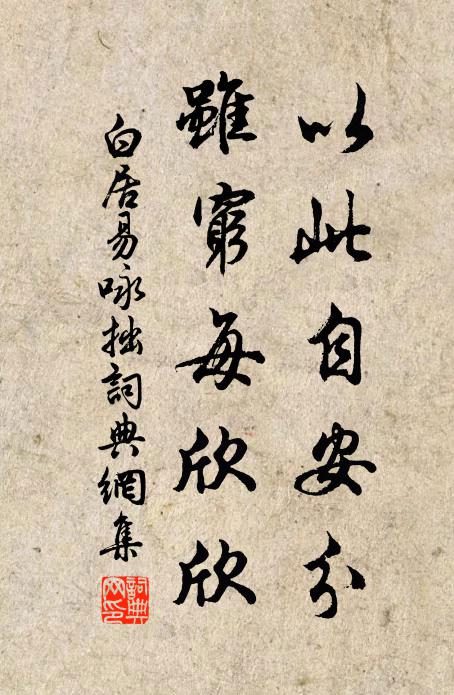 以此自安分
雖窮每欣欣
白居易咏拙詞典網集
詞典网印